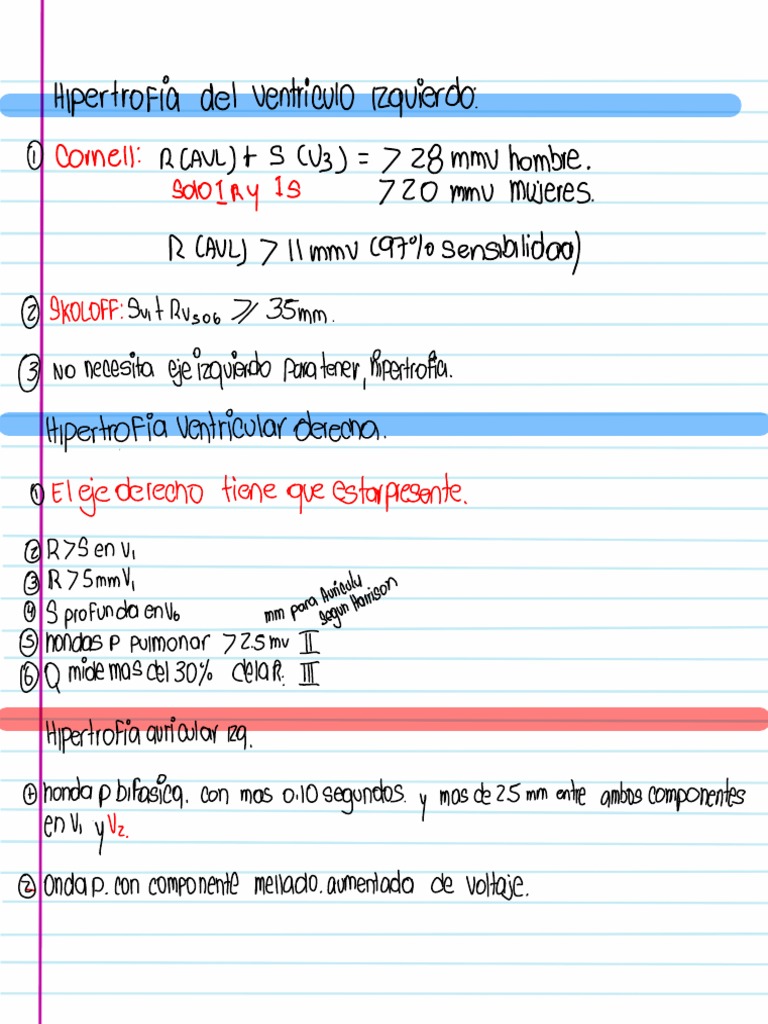 Hipertrofia del ventriculo izquierdo:
① Cornell: R(AVL)+ S (V3) = > 28 mmv hombre.
solo 1 R y 1 S > 20 mmv mujeres.
R (AVL) > 11 mmv (97% sensibilidad)
② SKOLOFF: SV1 + RV5 o 6 ⩾ 35mm.
③ No necesita eje izquierdo para tener, hipertrofia.
Hipertrofia ventricular derecha.
① El eje derecho tiene que estar presente.
② R > S en V1
③ R > 5mm V1
④ S profunda en V6
mm para Auriculu
segun Harrison
⑤ hondas P pulmonar > 2.5 mv II
⑥ Q mide mas del 30% de la R. III
Hipertrofia auricular izq.
① honda p bifasica. con mas 0.10 segundos. y mas de 2.5 mm entre ambos componentes
en V1 y V2.
② Onda p. con componente mellado. aumentada de voltaje.